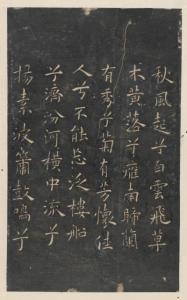 秋風起兮白雲飛草
木黃落兮雁南歸蘭
有秀兮菊有芳懷佳
人兮不能忘泛樓船
兮濟汾河橫中流兮
揚素波簫鼓鳴兮